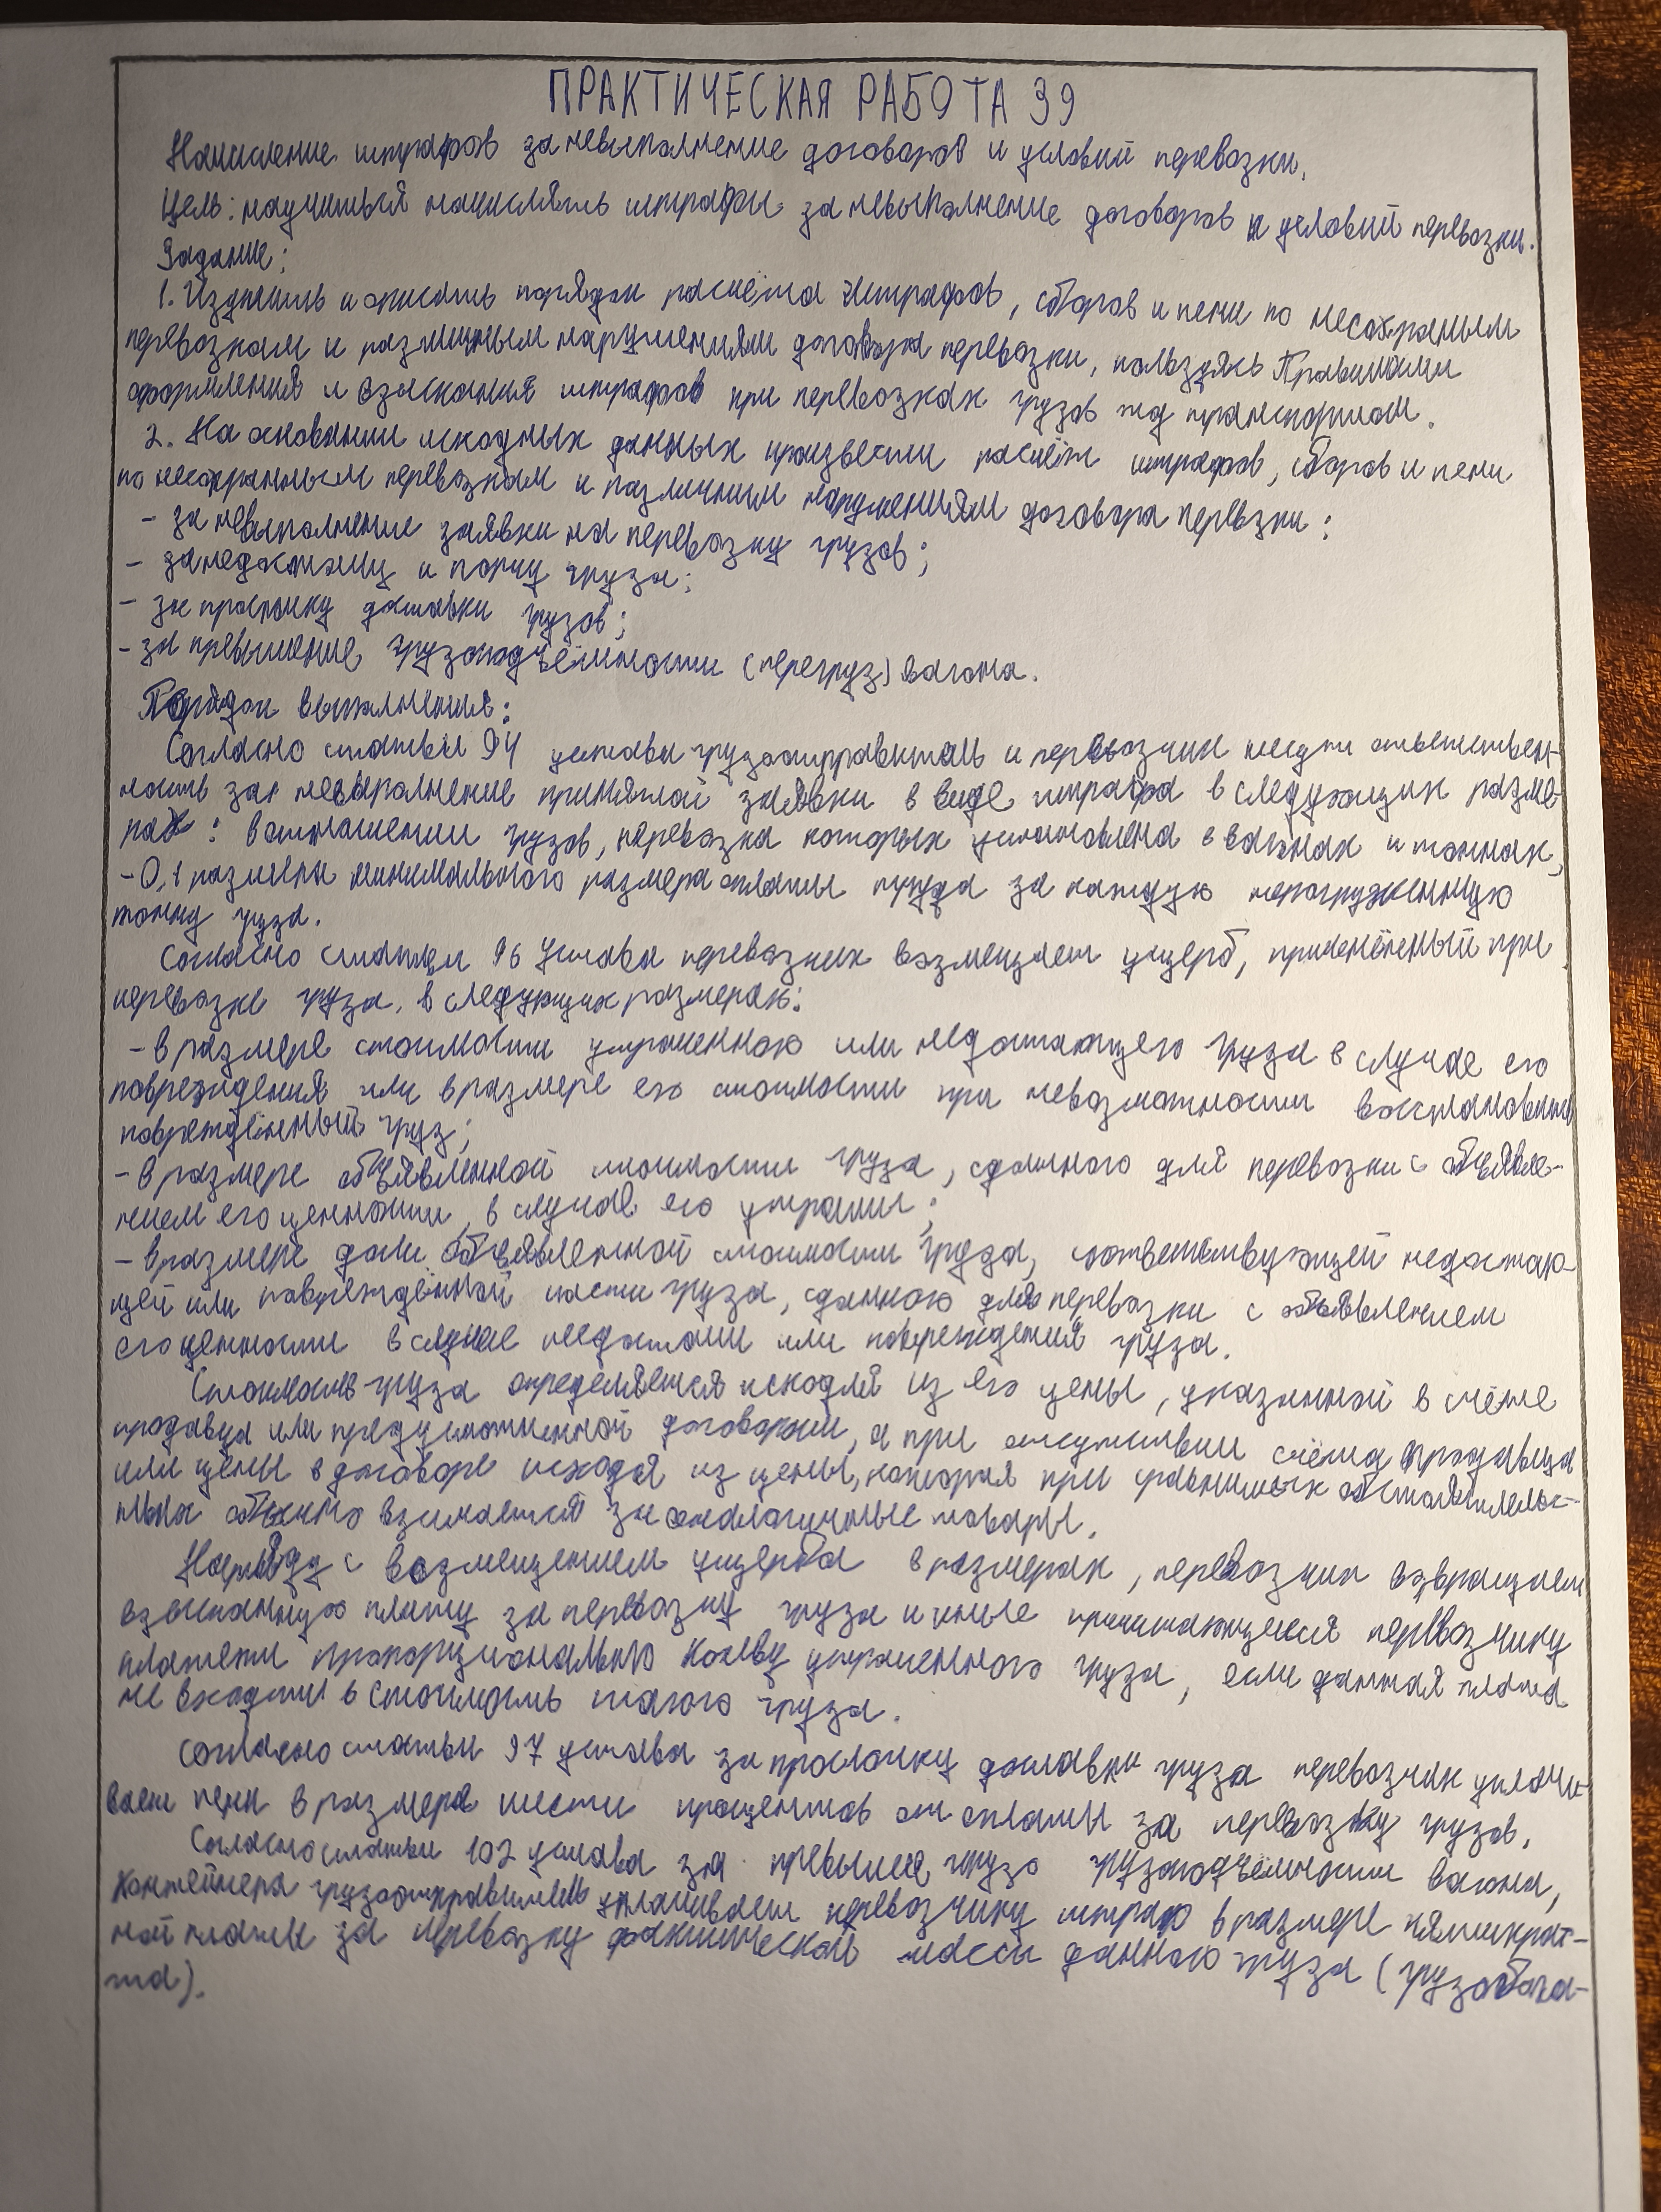 ПРАКТИЧЕСКАЯ РАБОТА 39
Начисление штрафов за невыполнение договоров и условий перевозки.
Цель: научиться начислять штрафы за невыполнение договоров и условий перевозки.
Задание:
1. Изучить и описать порядок расчёта штрафов, сборов и пени по несохранным
перевозкам и различным нарушениям договора перевозки, пользуясь Правилами
оформления и взыскания штрафов при перевозках грузов жд транспортом.
2. На основании исходных данных произвести расчёт штрафов, сборов и пени
по несохранным перевозкам и различным нарушениям договора перевзки:
- за невыполнение заявки на перевозку грузов;
- за недостачу и порчу груза;
- за просрочку доставки грузов;
- за превышение грузоподъёмности (перегруз) вагона.
Порядок выполнения:
Согласно статьи 94 устава грузоотправитель и перевозчик несут ответствен-
ность за невыполнение принятой заявки в виде штрафа в следующих разме-
рах: в отношении грузов, перевозка которых установлена в вагонах и тоннах,
- 0,1 размера минимального размера оплаты труда за каждую непогруженную
тонну груза.
Согласно статьи 96 Устава перевозчик возмещает ущерб, причинённый при
перевозке груза, в следующих размерах:
- в размере стоимости утраченного или недостающего груза в случае его
повреждения или в размере его стоимости при невозможности восстановить
повреждённый груз;
- в размере объявленной стоимости груза, сданного для перевозки с объявле-
нием его ценности, в случае его утраты;
- в размере доли объявленной стоимости груза, соответствующей недостаю-
щей или повреждённой части груза, сданного для перевозки с объявлением
его ценности в случае недостачи или повреждения груза.
Стоимость груза определяется исходя из его цены, указанной в счёте
продавца или предусмотренной договором, а при отсутствии счёта продавца
или цены в договоре исходя из цены, которая при сравнимых обстоятельс-
твах обычно взимается за аналогичные товары.
Наряду с возмещением ущерба в размерах, перевозчик возвращает
взысканную плату за перевозку груза и иные причитающиеся перевозчику
платежи пропорционально кол-ву утраченного груза, если данная плата
не входит в стоимость такого груза.
Согласно статьи 97 устава за просрочку доставки груза перевозчик уплачи-
вает пени в размере шести процентов от платы за перевозку грузов.
Согласно статьи 102 устава за превыше грузо грузоподъёмности вагона,
контейнера грузоотправитель уплачивает перевозчику штраф в размере пятикрат-
ной платы за перевозку фактической массы данного груза (грузобага-
жа).